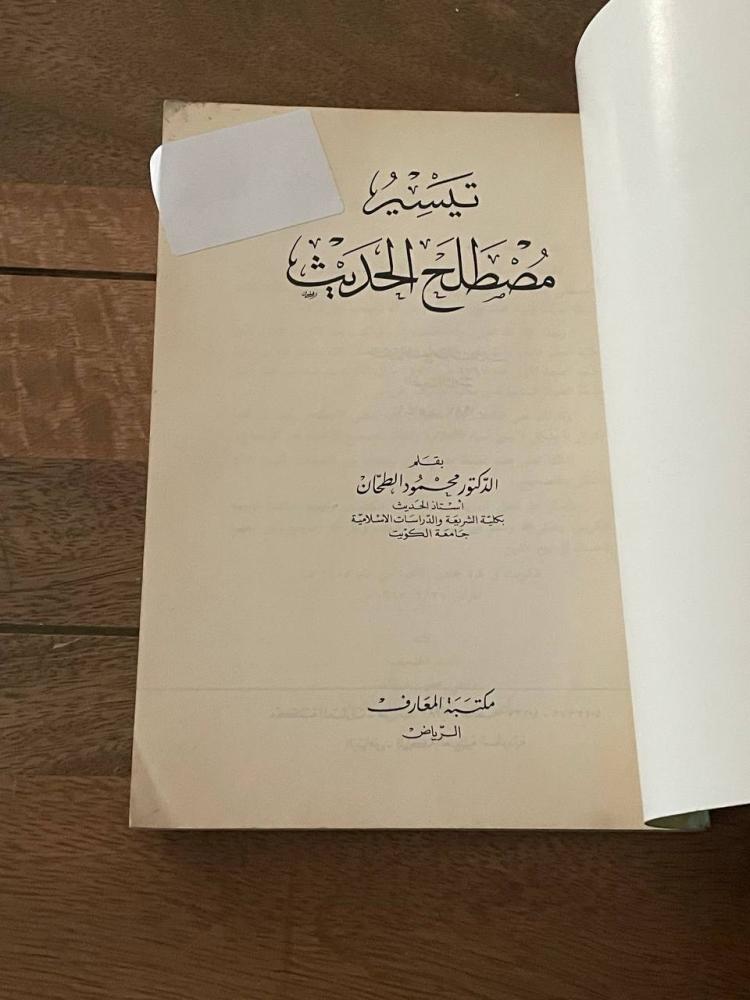 تَيسِيرُ
مُصْطَلَح الحَدِيث
بقلم
الدكتور محمود الطحان
أستاذ الحديث
بكلية الشريعة والدراسات الاسلامية
جامعة الكويت
مكتبة المعارف
الرياض